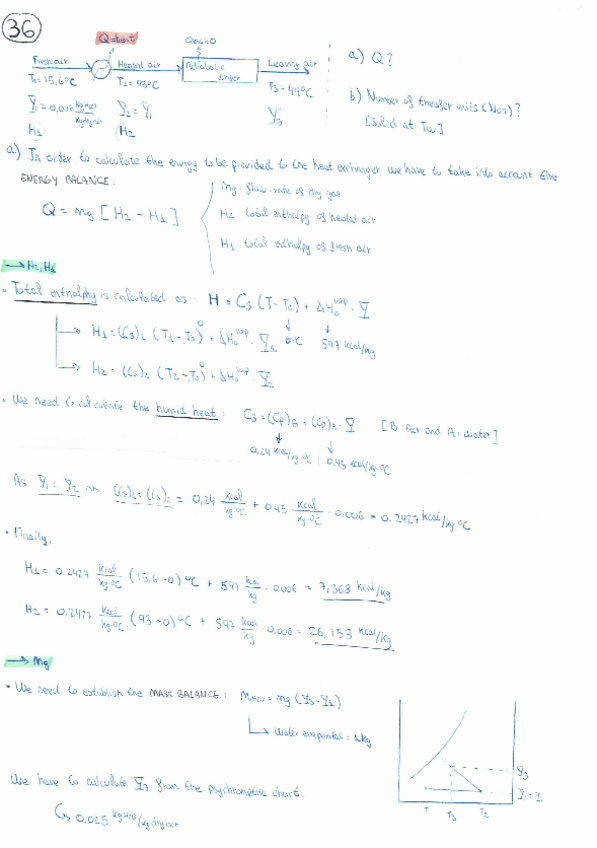 36
Q about
Qbaño
Fresh air
Heated air
Adiabatic dryer
Leaving air
T1 = 15,6ºC
T2 = 93ºC
T3 = 49ºC
Y1 = 0,006 kg H2O/kg dry air
Y2 = Y1
Y3
H1
H2
a) Q?
b) Number of transfer units (NOT)?
[Solid at Tw]
a) In order to calculate the energy to be provided to the heat exchanger, we have to take into account the
ENERGY BALANCE:
Q = mg [H2 - H1]
Mg flow-rate of dry gas
H2 total enthalpy of heated air
H1 total enthalpy of fresh air
→ H2, H1
• Total enthalphy is calculated as: H = Cs (T - T0) + ΔH0vap · Y
0ºC
597 kcal/kg
H1 = (Cs)1 (T1 - T0)0 + ΔH0vap · Y1
H2 = (Cs)2 (T2 - T0)0 + ΔH0vap · Y2
• We need to calculate the humid heat: Cs = (Cp)B + (Cp)A · Y [B: Air and A: water]
0,24 kcal/kg·ºC ; 0,45 kcal/kg·ºC
As Y1 = Y2 (Cs)1 = (Cs)2 = 0,24 kcal/kg·ºC + 0,45 kcal/kg·ºC · 0,006 = 0.2427 kcal/kg·ºC
• Finally,
H1 = 0.2427 kcal/kg·ºC (15,6 - 0) ºC + 597 kcal/kg · 0.006 = 7,368 kcal/kg
H2 = 0.2427 kcal/kg·ºC (93 - 0)ºC + 597 kcal/kg · 0,006 = 26,153 kcal/kg
→ Mg
• We need to establish the MASS BALANCE: MH2O = mg (Y3 - Y1)
Water evaporated = 1kg
We have to calculate Y3 from the psychrometric chart.
0,025 kg H2O/kg dry air
Y3
T
T3
T2